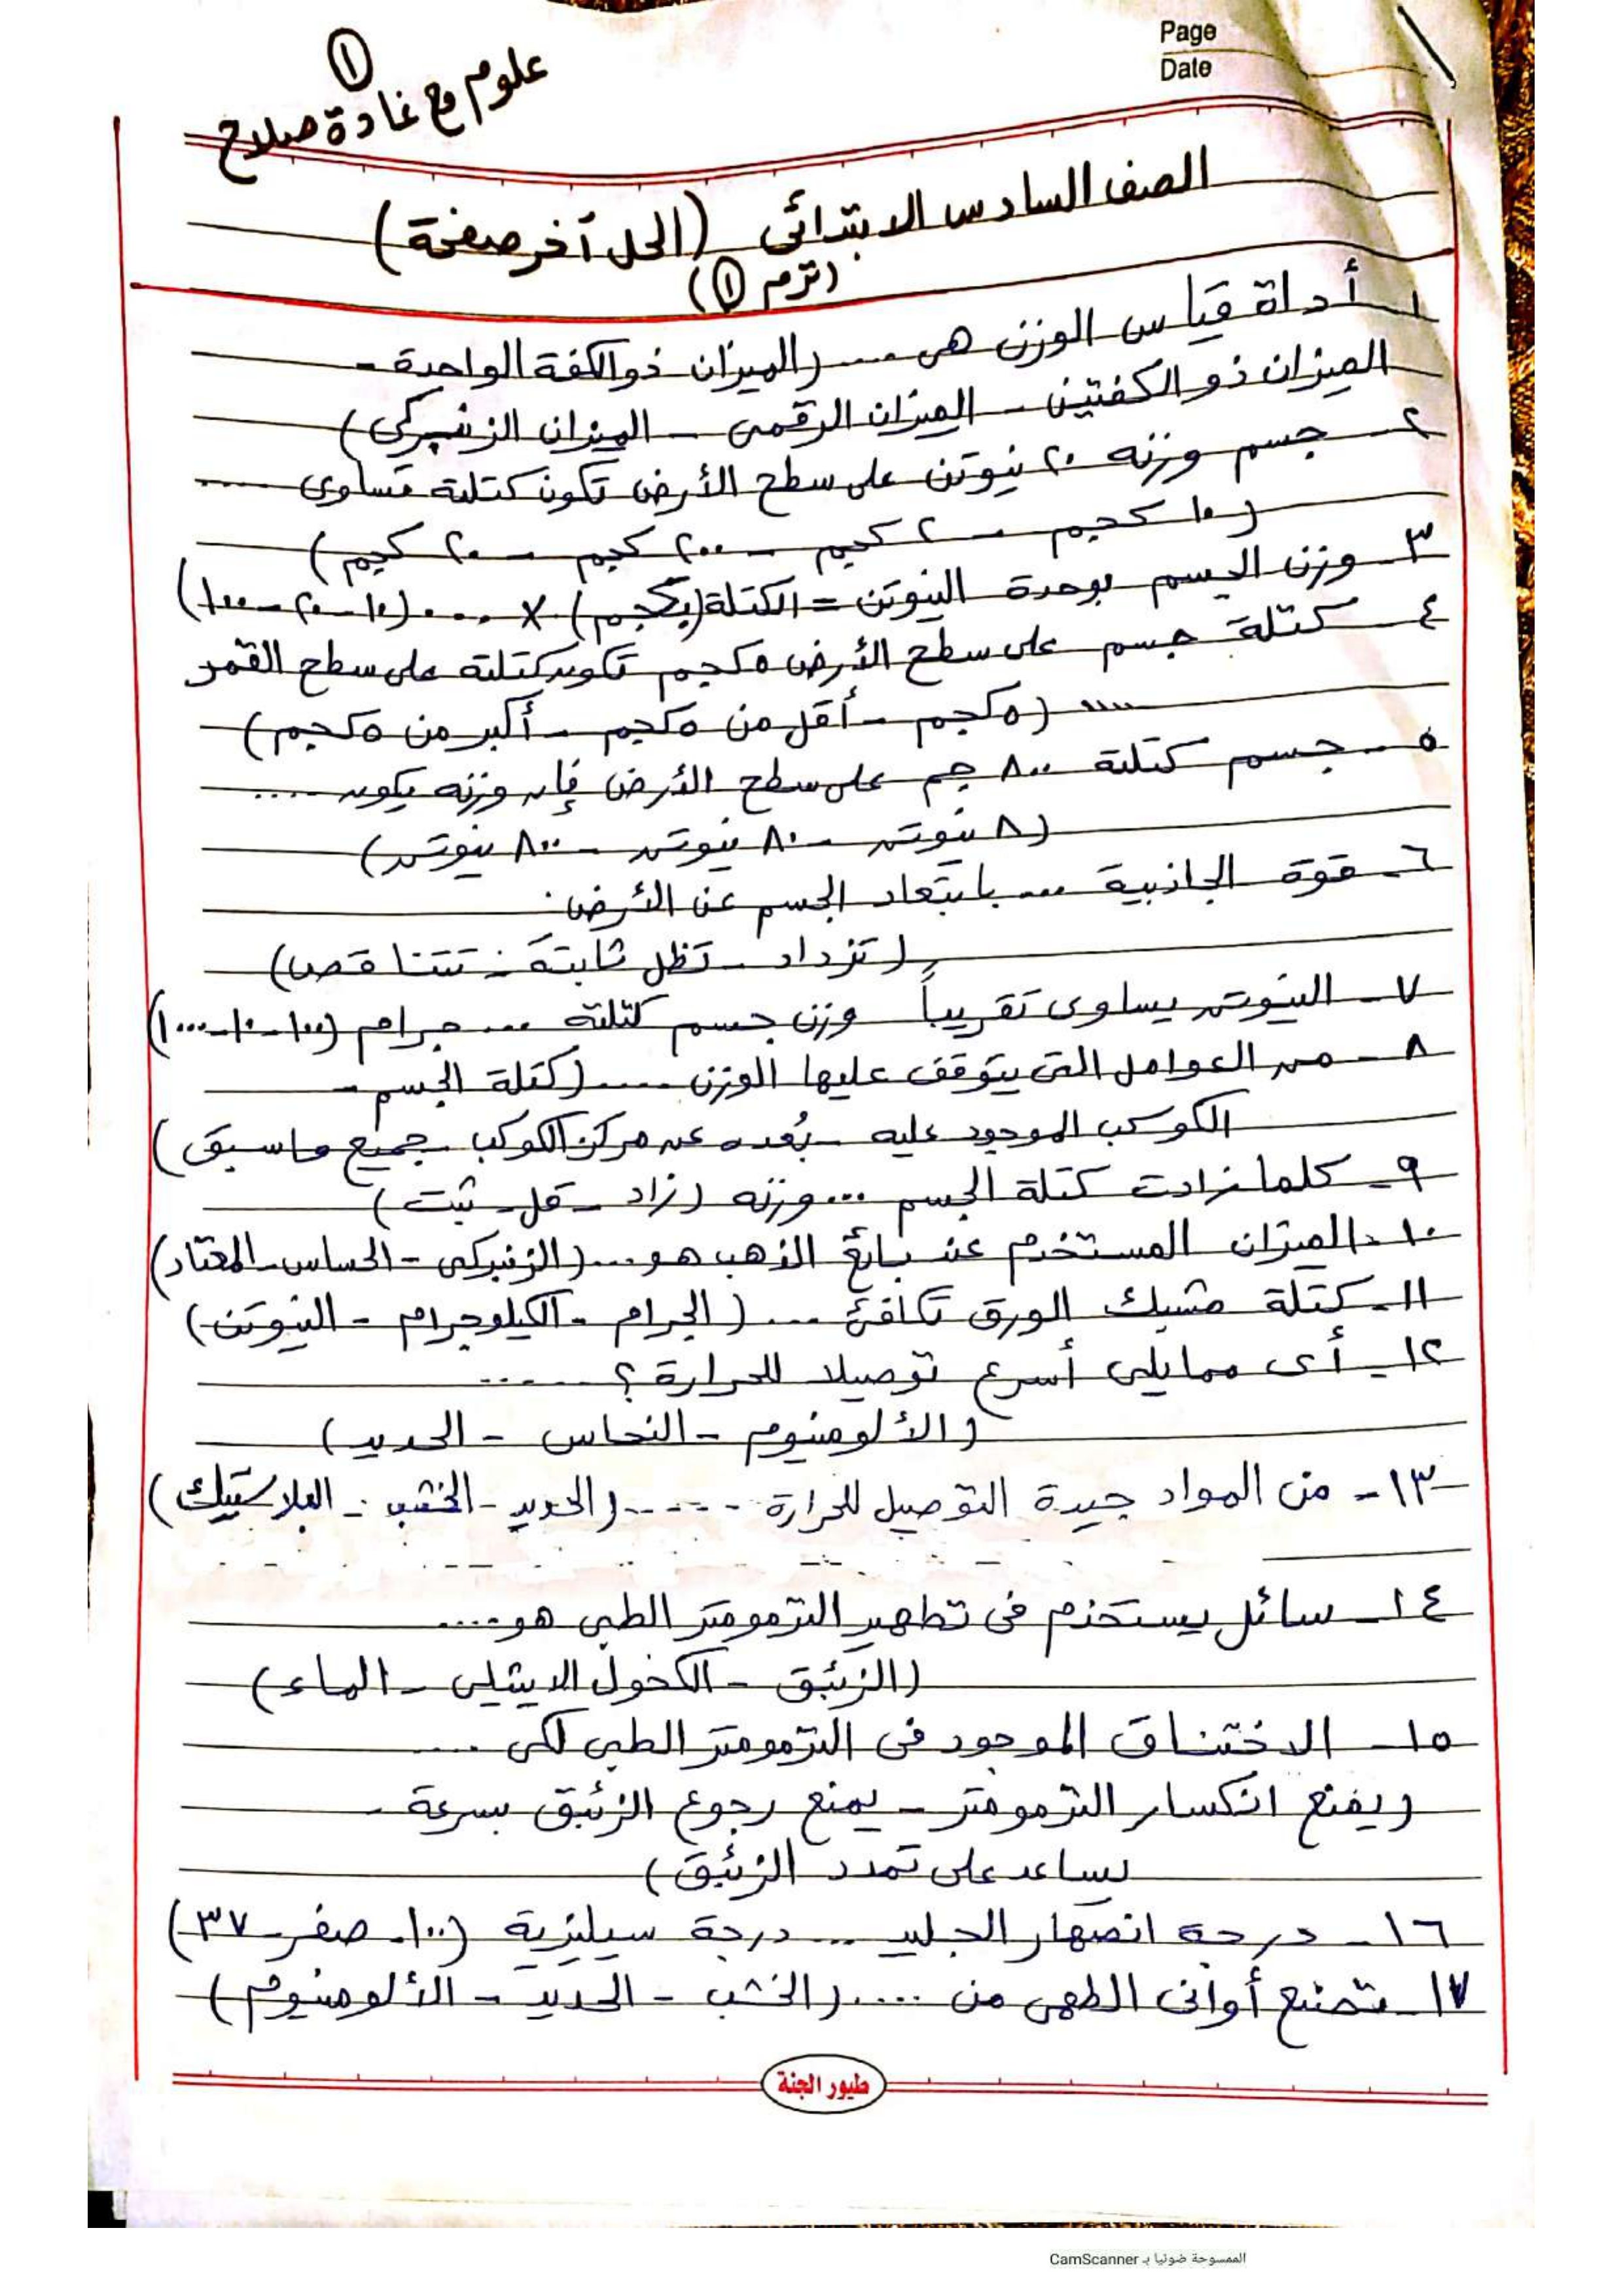 Page
Date
١
علوم مع غادة صلاح
الصف السادس الابتدائى (الحل آخر صفحة)
(ترم ١)
١ـ أداة قياس الوزن هى .... (الميزان ذو الكفة الواحدة -
الميزان ذو الكفتين - الميزان الرقمى - الميزان الزنبركى)
٢ـ جسم وزنه ٢٠ نيوتن على سطح الأرض تكون كتلته تساوى .....
(١٠ كجم - ٢ كجم - ٢٠٠ كجم - ٢٠ كجم)
٣ـ وزن الجسم بوحدة النيوتن = الكتلة (بكجم) × .... (١٠ - ٢٠ - ١٠٠)
٤ـ كتلة جسم على سطح الأرض ٥ كجم تكون كتلته على سطح القمر
..... (٥ كجم - أقل من ٥ كجم - أكبر من ٥ كجم)
٥ـ جسم كتلته ٨٠٠ جم على سطح الأرض فإن وزنه يكون .....
(٨ نيوتن - ٨٠ نيوتن - ٨٠٠ نيوتن)
٦ـ قوة الجاذبية .... بابتعاد الجسم عن الأرض.
(تزداد - تظل ثابتة - تتناقص)
٧ـ النيوتن يساوى تقريباً وزن جسم كتلته .... جرام (١٠٠ - ١٠ - ١٠٠٠)
٨ـ من العوامل التى يتوقف عليها الوزن ..... (كتلة الجسم -
الكوكب الموجود عليه - بُعده عن مركز الكوكب - جميع ماسبق)
٩ـ كلما زادت كتلة الجسم .... وزنه (زاد - قل - ثبت)
١٠ـ الميزان المستخدم عند بائع الذهب هو .... (الزنبركى - الحساس - المعتاد)
١١ـ كتلة مشبك الورق تكافئ .... (الجرام - الكيلوجرام - النيوتن)
١٢ـ أى مما يلى أسرع توصيلا للحرارة ؟ ......
(الألومنيوم - النحاس - الحديد)
١٣ـ من المواد جيدة التوصيل للحرارة ...... (الحديد - الخشب - البلاستيك)
١٤ـ سائل يستخدم فى تطهير الترمومتر الطبى هو ....
(الزئبق - الكحول الايثيلى - الماء)
١٥ـ الاختناق الموجود فى الترمومتر الطبى لكى ....
(يمنع انكسار الترمومتر - يمنع رجوع الزئبق بسرعة -
يساعد على تمدد الزئبق)
١٦ـ درجة انصهار الجليد .... درجة سيليزية (١٠٠ - صفر - ٣٧)
١٧ـ تصنع أوانى الطهى من ..... (الخشب - الحديد - الألومنيوم)
طيور الجنة
الممسوحة ضوئيا بـ CamScanner